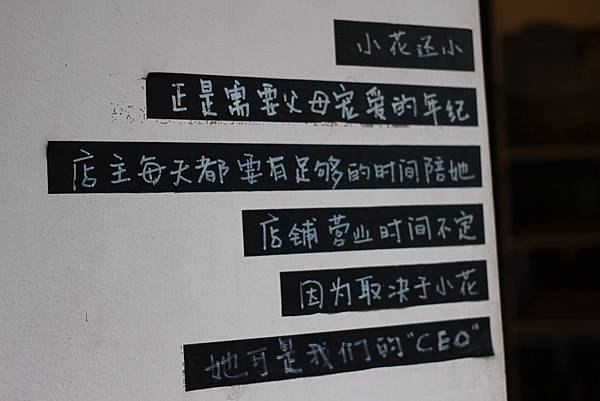 小花还小
正是需要父母宠爱的年纪
店主每天都要有足够的时间陪她
店铺营业时间不定
因为取决于小花
她可是我们的"CEO"